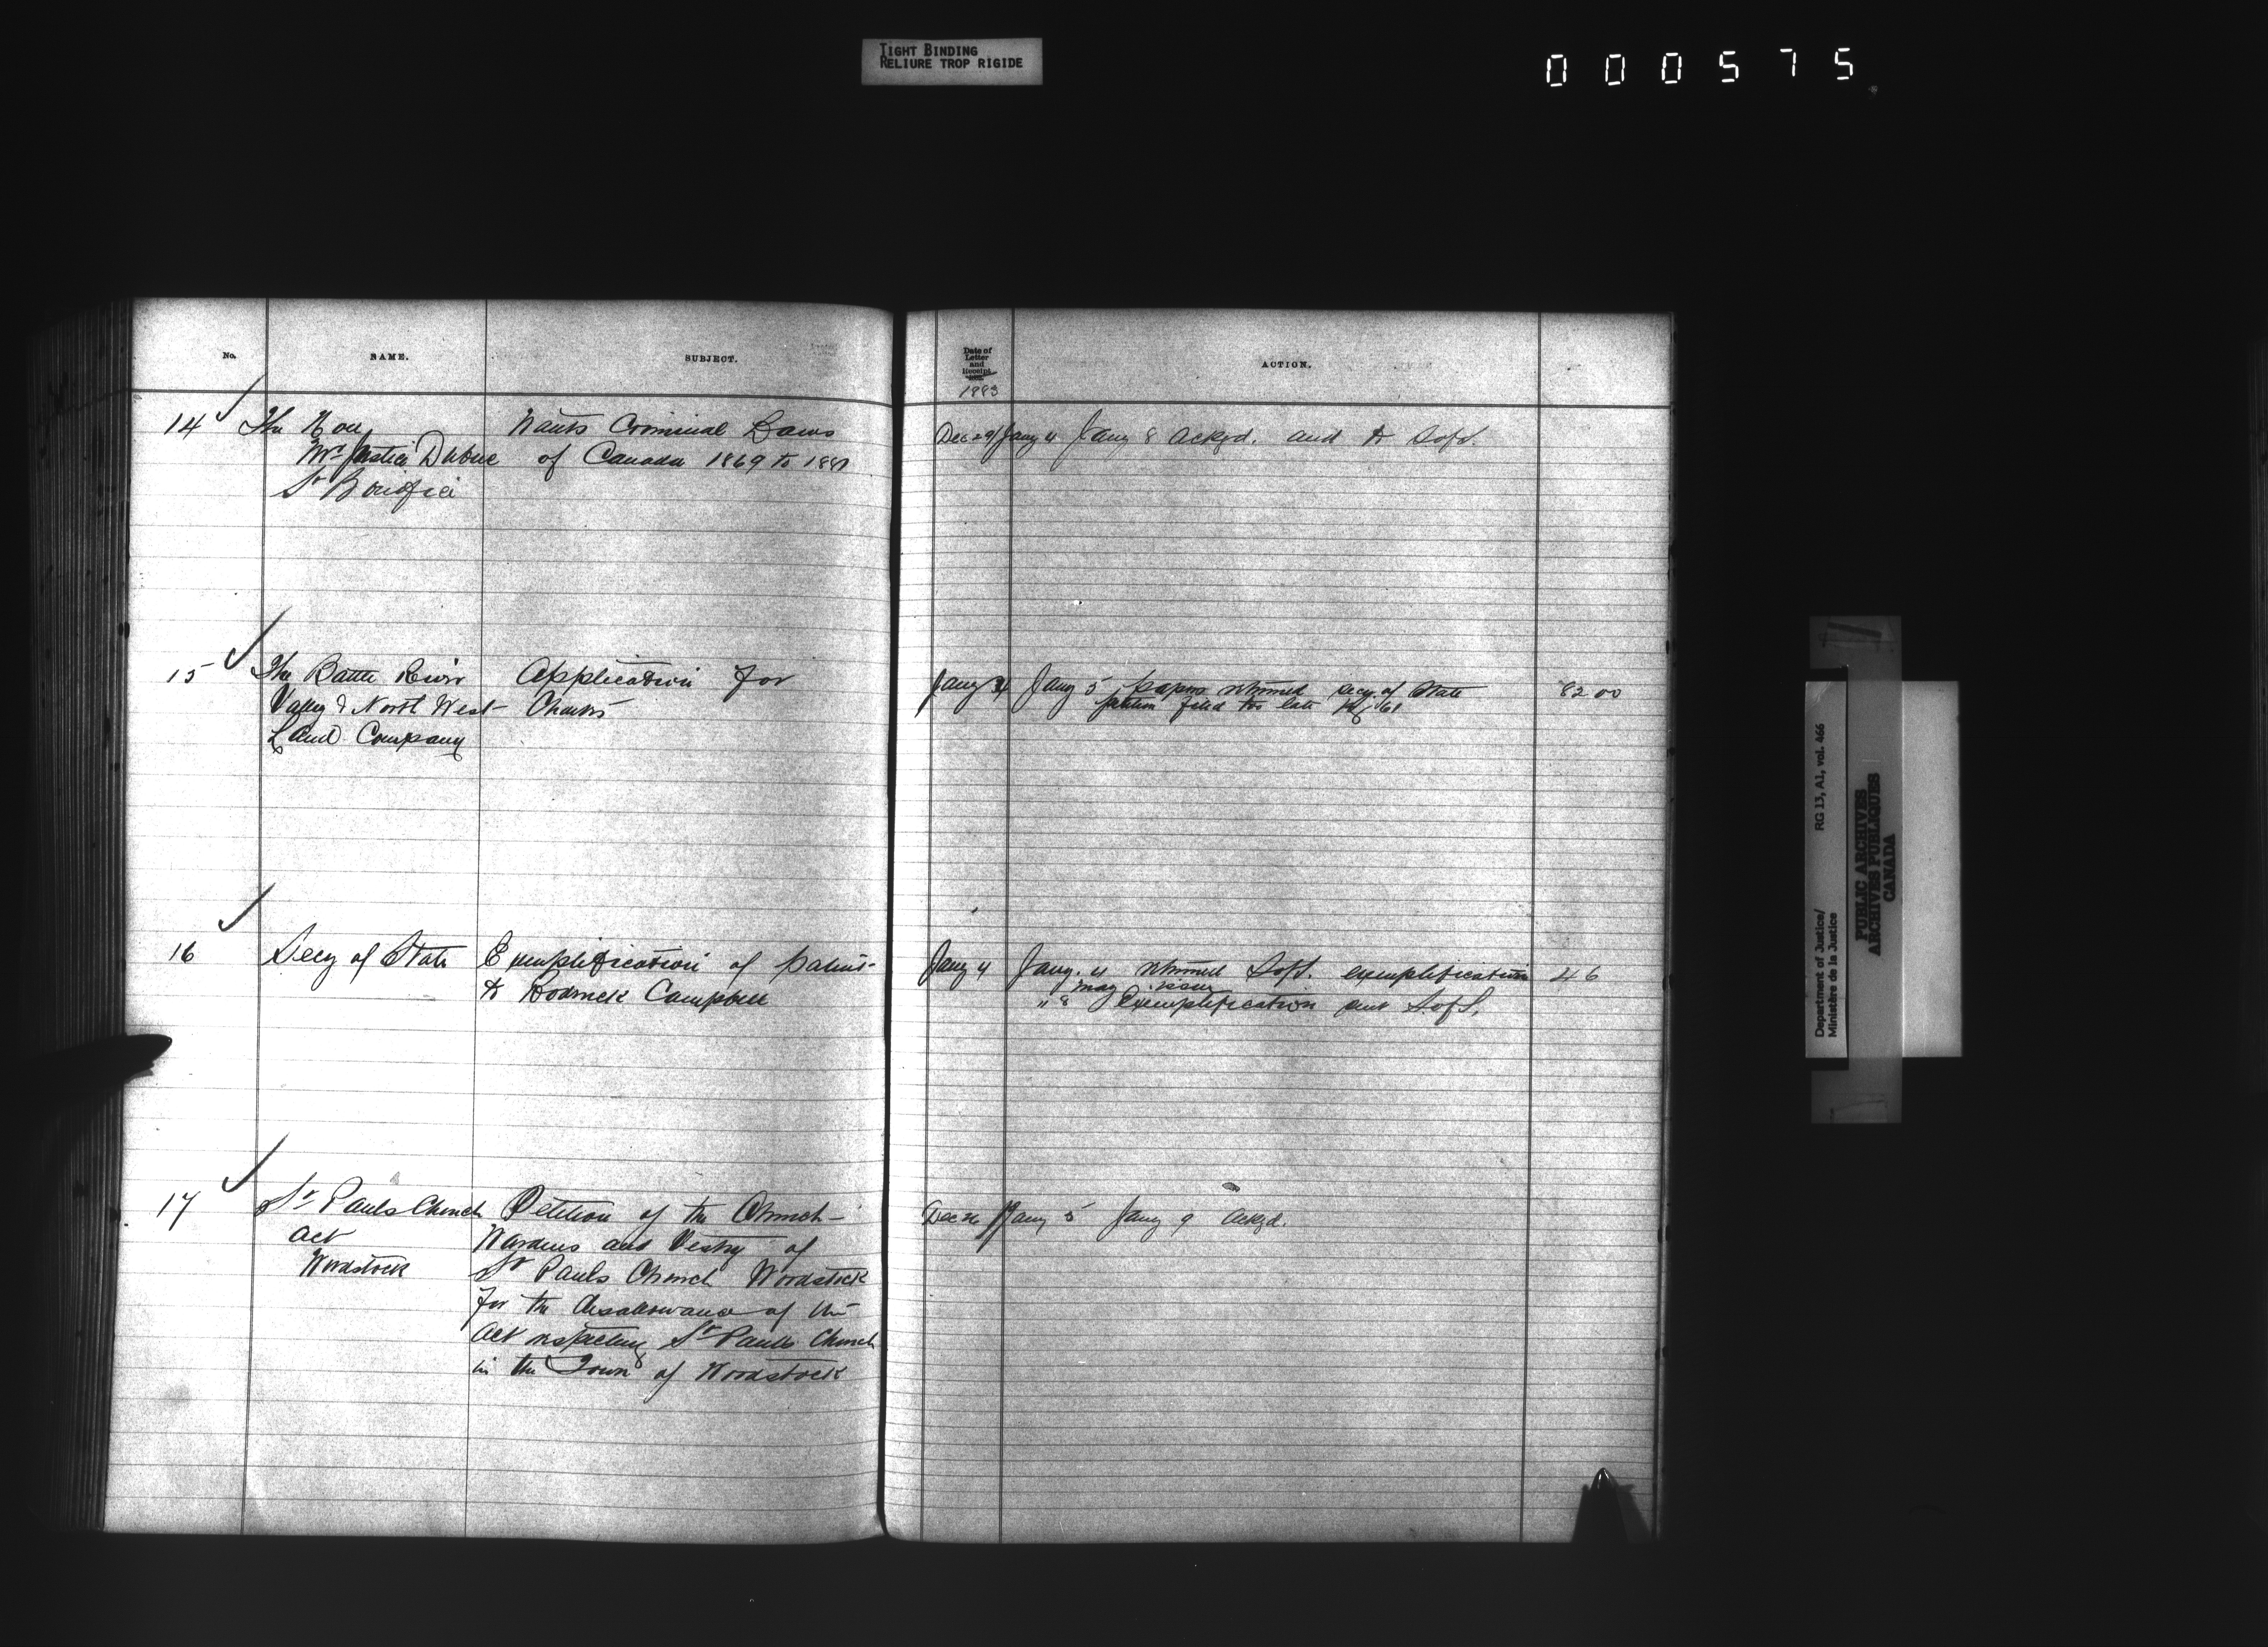 TIGHT BINDING
RELIURE TROP RIGIDE
000575
No.
NAME.
SUBJECT.
Date of
Letter
and
Receipt
1883
ACTION.
14 The Hon Wants Criminal Laws Dec 29/Jany 4 Jany 8 Ackgd. and to S of S.
Mr Justice Dubuc of Canada 1869 to
St Boniface
15 The Battle River Application for Jany 4 Jany 5 papers returned Secy of State 82 00
Valley & North West Charter petition filed too late
Land Company
16 Secy of State Exemplification of patent Jany 4 Jany. 4 returned S of S. exemplification 46
may issue
to Roderick Campbell " 8 Exemplification sent S of S.
17 St Pauls Church Petition of the Church Dec 26/Jany 5 Jany 9 Ackgd.
Act Wardens and Vestry of
Woodstock St Pauls Church Woodstock
for the disallowance of the
Act respecting St Pauls Church
in the Town of Woodstock
Department of Justice/ RG 13, A1, vol. 466
Ministère de la Justice
PUBLIC ARCHIVES
ARCHIVES PUBLIQUES
CANADA